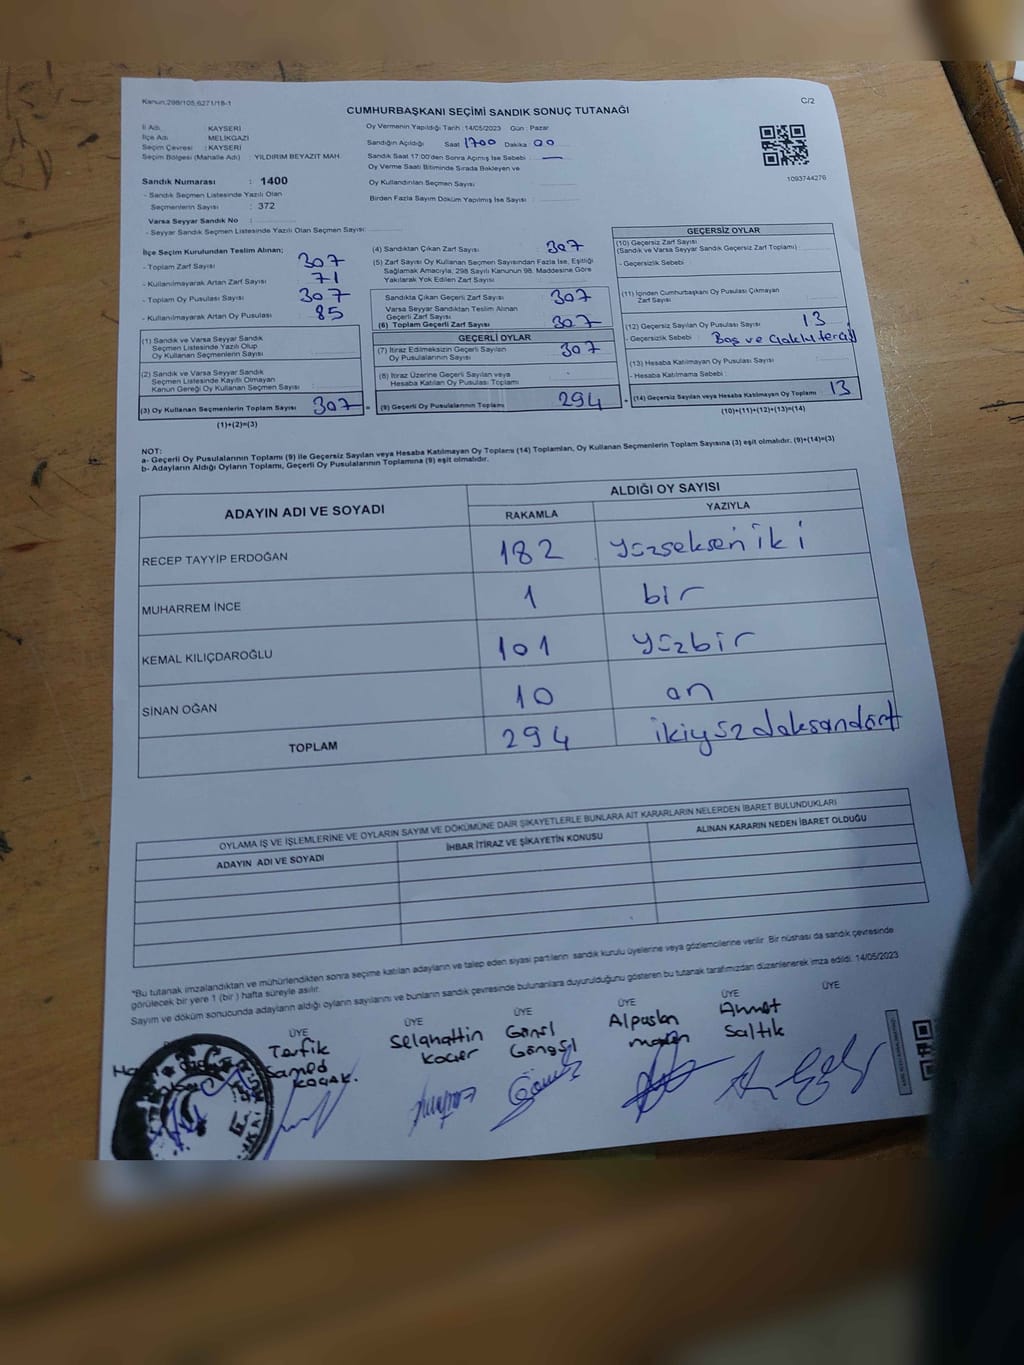 Kanun:298/105,6271/18-1
C/2
CUMHURBAŞKANI SEÇİMİ SANDIK SONUÇ TUTANAĞI
İl Adı : KAYSERİ
İlçe Adı : MELİKGAZİ
Seçim Çevresi : KAYSERİ
Seçim Bölgesi (Mahalle Adı) : YILDIRIM BEYAZIT MAH.
Sandık Numarası : 1400
- Sandık Seçmen Listesinde Yazılı Olan
Seçmenlerin Sayısı : 372
Varsa Seyyar Sandık No :
- Seyyar Sandık Seçmen Listesinde Yazılı Olan Seçmen Sayısı:
Oy Vermenin Yapıldığı Tarih :14/05/2023 Gün : Pazar
Sandığın Açıldığı Saat 1700 Dakika : 00
Sandık Saat 17:00'den Sonra Açılmış İse Sebebi : —
Oy Verme Saati Bitiminde Sırada Bekleyen ve
Oy Kullandırılan Seçmen Sayısı :
Birden Fazla Sayım Döküm Yapılmış İse Sayısı :
1093744276
İlçe Seçim Kurulundan Teslim Alınan;
- Toplam Zarf Sayısı : 307
- Kullanılmayarak Artan Zarf Sayısı : 71
- Toplam Oy Pusulası Sayısı : 307
- Kullanılmayarak Artan Oy Pusulası : 85
(1) Sandık ve Varsa Seyyar Sandık
Seçmen Listesinde Yazılı Olup
Oy Kullanan Seçmenlerin Sayısı :
(2) Sandık ve Varsa Seyyar Sandık
Seçmen Listesinde Kayıtlı Olmayan
Kanun Gereği Oy Kullanan Seçmen Sayısı :
(3) Oy Kullanan Seçmenlerin Toplam Sayısı : 307
(1)+(2)=(3)
(4) Sandıktan Çıkan Zarf Sayısı : 307
(5) Zarf Sayısı Oy Kullanan Seçmen Sayısından Fazla İse, Eşitliği
Sağlamak Amacıyla, 298 Sayılı Kanunun 98. Maddesine Göre
Yakılarak Yok Edilen Zarf Sayısı :
Sandıkta Çıkan Geçerli Zarf Sayısı : 307
Varsa Seyyar Sandıktan Teslim Alınan
Geçerli Zarf Sayısı :
(6) Toplam Geçerli Zarf Sayısı : 307
GEÇERLİ OYLAR
(7) İtiraz Edilmeksizin Geçerli Sayılan
Oy Pusulalarının Sayısı : 307
(8) İtiraz Üzerine Geçerli Sayılan veya
Hesaba Katılan Oy Pusulası Toplamı :
= (9) Geçerli Oy Pusulalarının Toplamı : 294
GEÇERSİZ OYLAR
(10) Geçersiz Zarf Sayısı
(Sandık ve Varsa Seyyar Sandık Geçersiz Zarf Toplamı) :
- Geçersizlik Sebebi :
(11) İçinden Cumhurbaşkanı Oy Pusulası Çıkmayan
Zarf Sayısı :
(12) Geçersiz Sayılan Oy Pusulası Sayısı : 13
- Geçersizlik Sebebi : Boş ve
(13) Hesaba Katılmayan Oy Pusulası Sayısı :
- Hesaba Katılmama Sebebi :
+ (14) Geçersiz Sayılan veya Hesaba Katılmayan Oy Toplamı : 13
(10)+(11)+(12)+(13)=(14)
NOT:
a- Geçerli Oy Pusulalarının Toplamı (9) ile Geçersiz Sayılan veya Hesaba Katılmayan Oy Toplamı (14) Toplamları, Oy Kullanan Seçmenlerin Toplam Sayısına (3) eşit olmalıdır. (9)+(14)=(3)
b- Adayların Aldığı Oyların Toplamı, Geçerli Oy Pusulalarının Toplamına (9) eşit olmalıdır.
ADAYIN ADI VE SOYADI
ALDIĞI OY SAYISI
RAKAMLA YAZIYLA
RECEP TAYYİP ERDOĞAN 182 yüzsekseniki
MUHARREM İNCE 1 bir
KEMAL KILIÇDAROĞLU 101 yüzbir
SİNAN OĞAN 10 on
TOPLAM 294 ikiyüzdoksandört
OYLAMA İŞ VE İŞLEMLERİNE VE OYLARIN SAYIM VE DÖKÜMÜNE DAİR ŞİKAYETLERLE BUNLARA AİT KARARLARIN NELERDEN İBARET BULUNDUKLARI
ADAYIN ADI VE SOYADI İHBAR İTİRAZ VE ŞİKAYETİN KONUSU ALINAN KARARIN NEDEN İBARET OLDUĞU
*Bu tutanak imzalandıktan ve mühürlendikten sonra seçime katılan adayların ve talep eden siyasi partilerin sandık kurulu üyelerine veya gözlemcilerine verilir. Bir nüshası da sandık çevresinde
görülecek bir yere 1 (bir ) hafta süreyle asılır.
Sayım ve döküm sonucunda adayların aldığı oyların sayılarını ve bunların sandık çevresinde bulunanlara duyurulduğunu gösteren bu tutanak tarafımızdan düzenlenerek imza edildi. 14/05/2023
ÜYE ÜYE ÜYE ÜYE ÜYE ÜYE
Tevfik Selahattin Alpaslan Ahmet
Samed Saltık